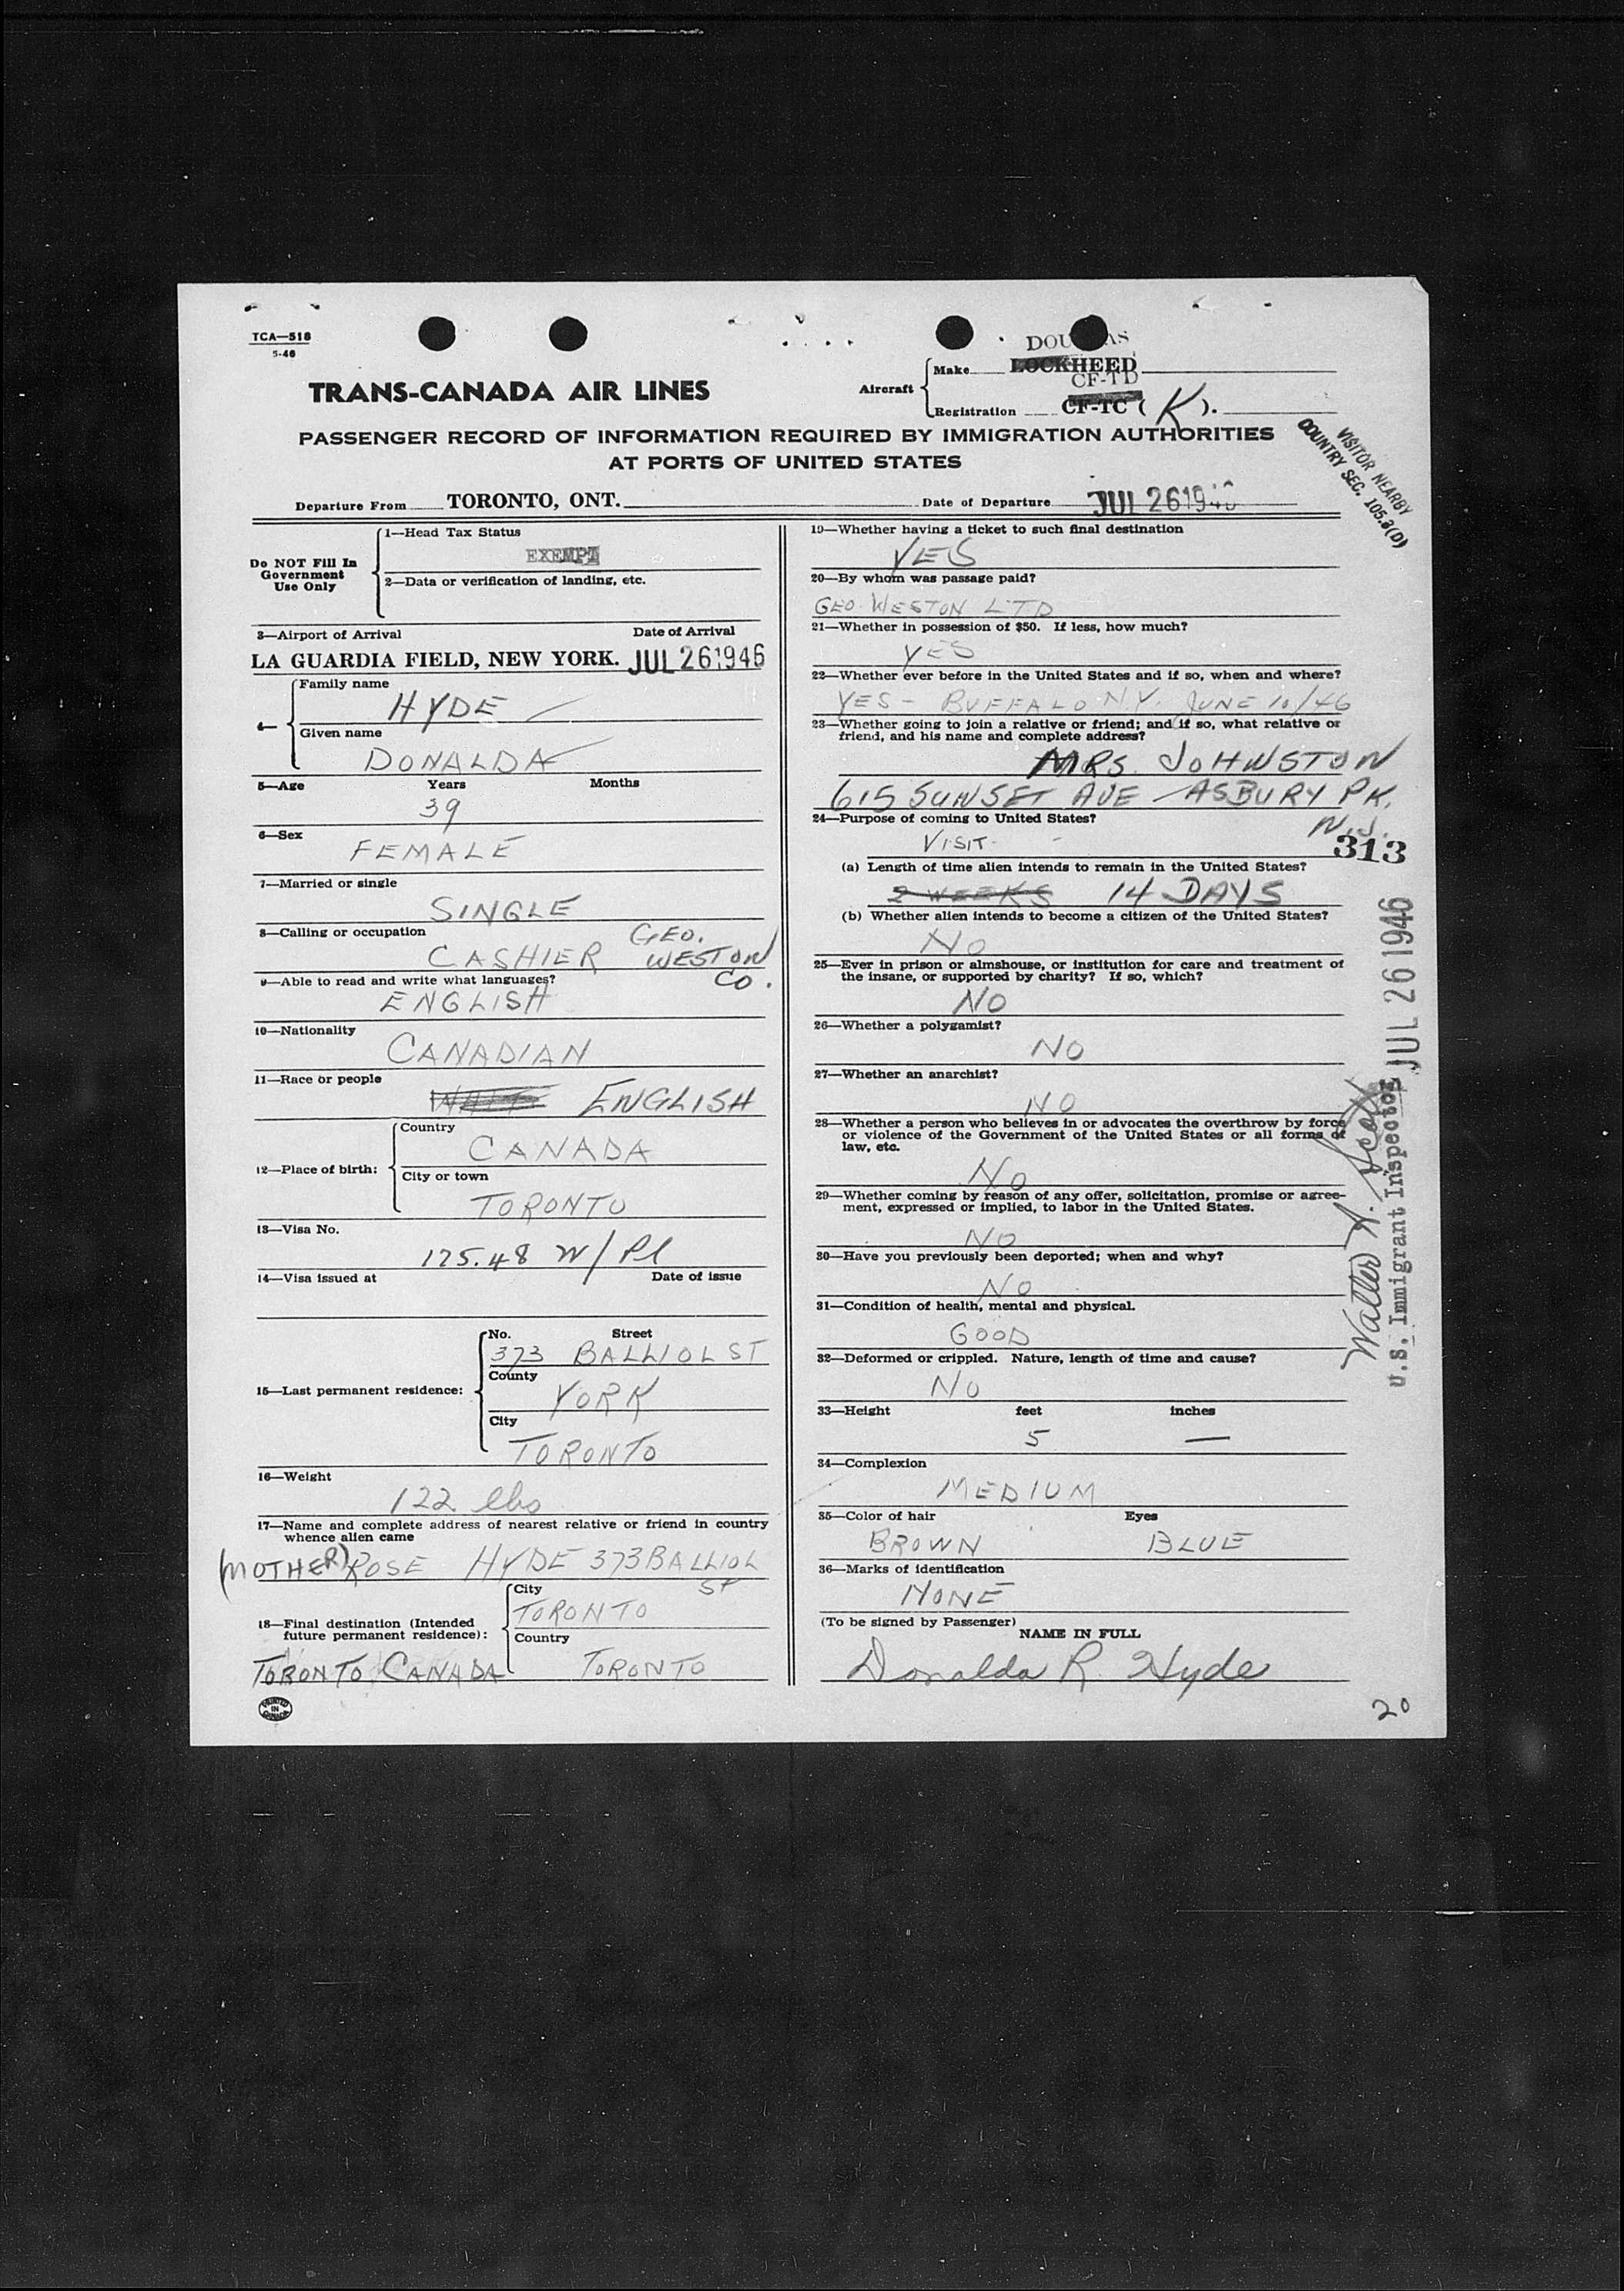 TCA—518
5-46
DOUGLAS
Aircraft Make LOCKHEED
CF-TD
Registration CF-TC ( K ).
TRANS-CANADA AIR LINES
PASSENGER RECORD OF INFORMATION REQUIRED BY IMMIGRATION AUTHORITIES
AT PORTS OF UNITED STATES
VISITOR NEARBY
COUNTRY SEC. 105.3(D)
Departure From TORONTO, ONT. Date of Departure JUL 26 1946
Do NOT Fill In
Government
Use Only
1—Head Tax Status
EXEMPT
2—Data or verification of landing, etc.
3—Airport of Arrival Date of Arrival
LA GUARDIA FIELD, NEW YORK. JUL 26 1946
4— Family name
HYDE
Given name
DONALDA
5—Age Years Months
39
6—Sex
FEMALE
7—Married or single
SINGLE
8—Calling or occupation
CASHIER GEO.
WESTON
CO.
9—Able to read and write what languages?
ENGLISH
10—Nationality
CANADIAN
11—Race or people
ENGLISH
12—Place of birth: Country
CANADA
City or town
TORONTO
13—Visa No.
175.48 W/Pl
14—Visa issued at Date of issue
15—Last permanent residence: No. Street
373 BALLIOL ST
County
YORK
City
TORONTO
16—Weight
122 lbs
17—Name and complete address of nearest relative or friend in country
whence alien came
(MOTHER) ROSE HYDE 373 BALLIOL
ST
18—Final destination (Intended
future permanent residence):
City
TORONTO
Country
TORONTO CANADA TORONTO
PRINTED
IN
CANADA
19—Whether having a ticket to such final destination
YES
20—By whom was passage paid?
GEO. WESTON LTD
21—Whether in possession of $50. If less, how much?
YES
22—Whether ever before in the United States and if so, when and where?
YES - BUFFALO N.Y. JUNE 10/46
23—Whether going to join a relative or friend; and if so, what relative or
friend, and his name and complete address?
MRS. JOHNSTON
615 SUNSET AVE ASBURY PK.
N.J.
24—Purpose of coming to United States?
VISIT-
313
(a) Length of time alien intends to remain in the United States?
2 WEEKS 14 DAYS
(b) Whether alien intends to become a citizen of the United States?
NO
25—Ever in prison or almshouse, or institution for care and treatment of
the insane, or supported by charity? If so, which?
NO
26—Whether a polygamist?
NO
27—Whether an anarchist?
NO
28—Whether a person who believes in or advocates the overthrow by force
or violence of the Government of the United States or all forms of
law, etc.
NO
29—Whether coming by reason of any offer, solicitation, promise or agree-
ment, expressed or implied, to labor in the United States.
NO
30—Have you previously been deported; when and why?
NO
31—Condition of health, mental and physical.
GOOD
32—Deformed or crippled. Nature, length of time and cause?
NO
33—Height feet inches
5 —
34—Complexion
MEDIUM
35—Color of hair Eyes
BROWN BLUE
36—Marks of identification
NONE
(To be signed by Passenger)
NAME IN FULL
Donalda R. Hyde
JUL 26 1946
Walter A. Scott
U.S. Immigrant Inspector
20